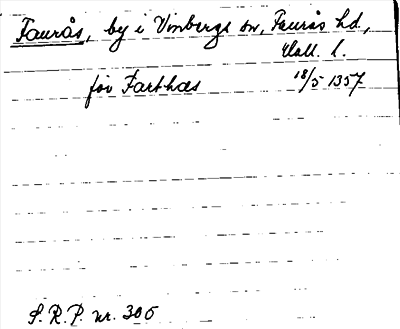 Faurås, by i Vinbergs sn, Faurås hd,
Hall. l.
för Farthas 18/5 1357
S.R.P. nr. 305